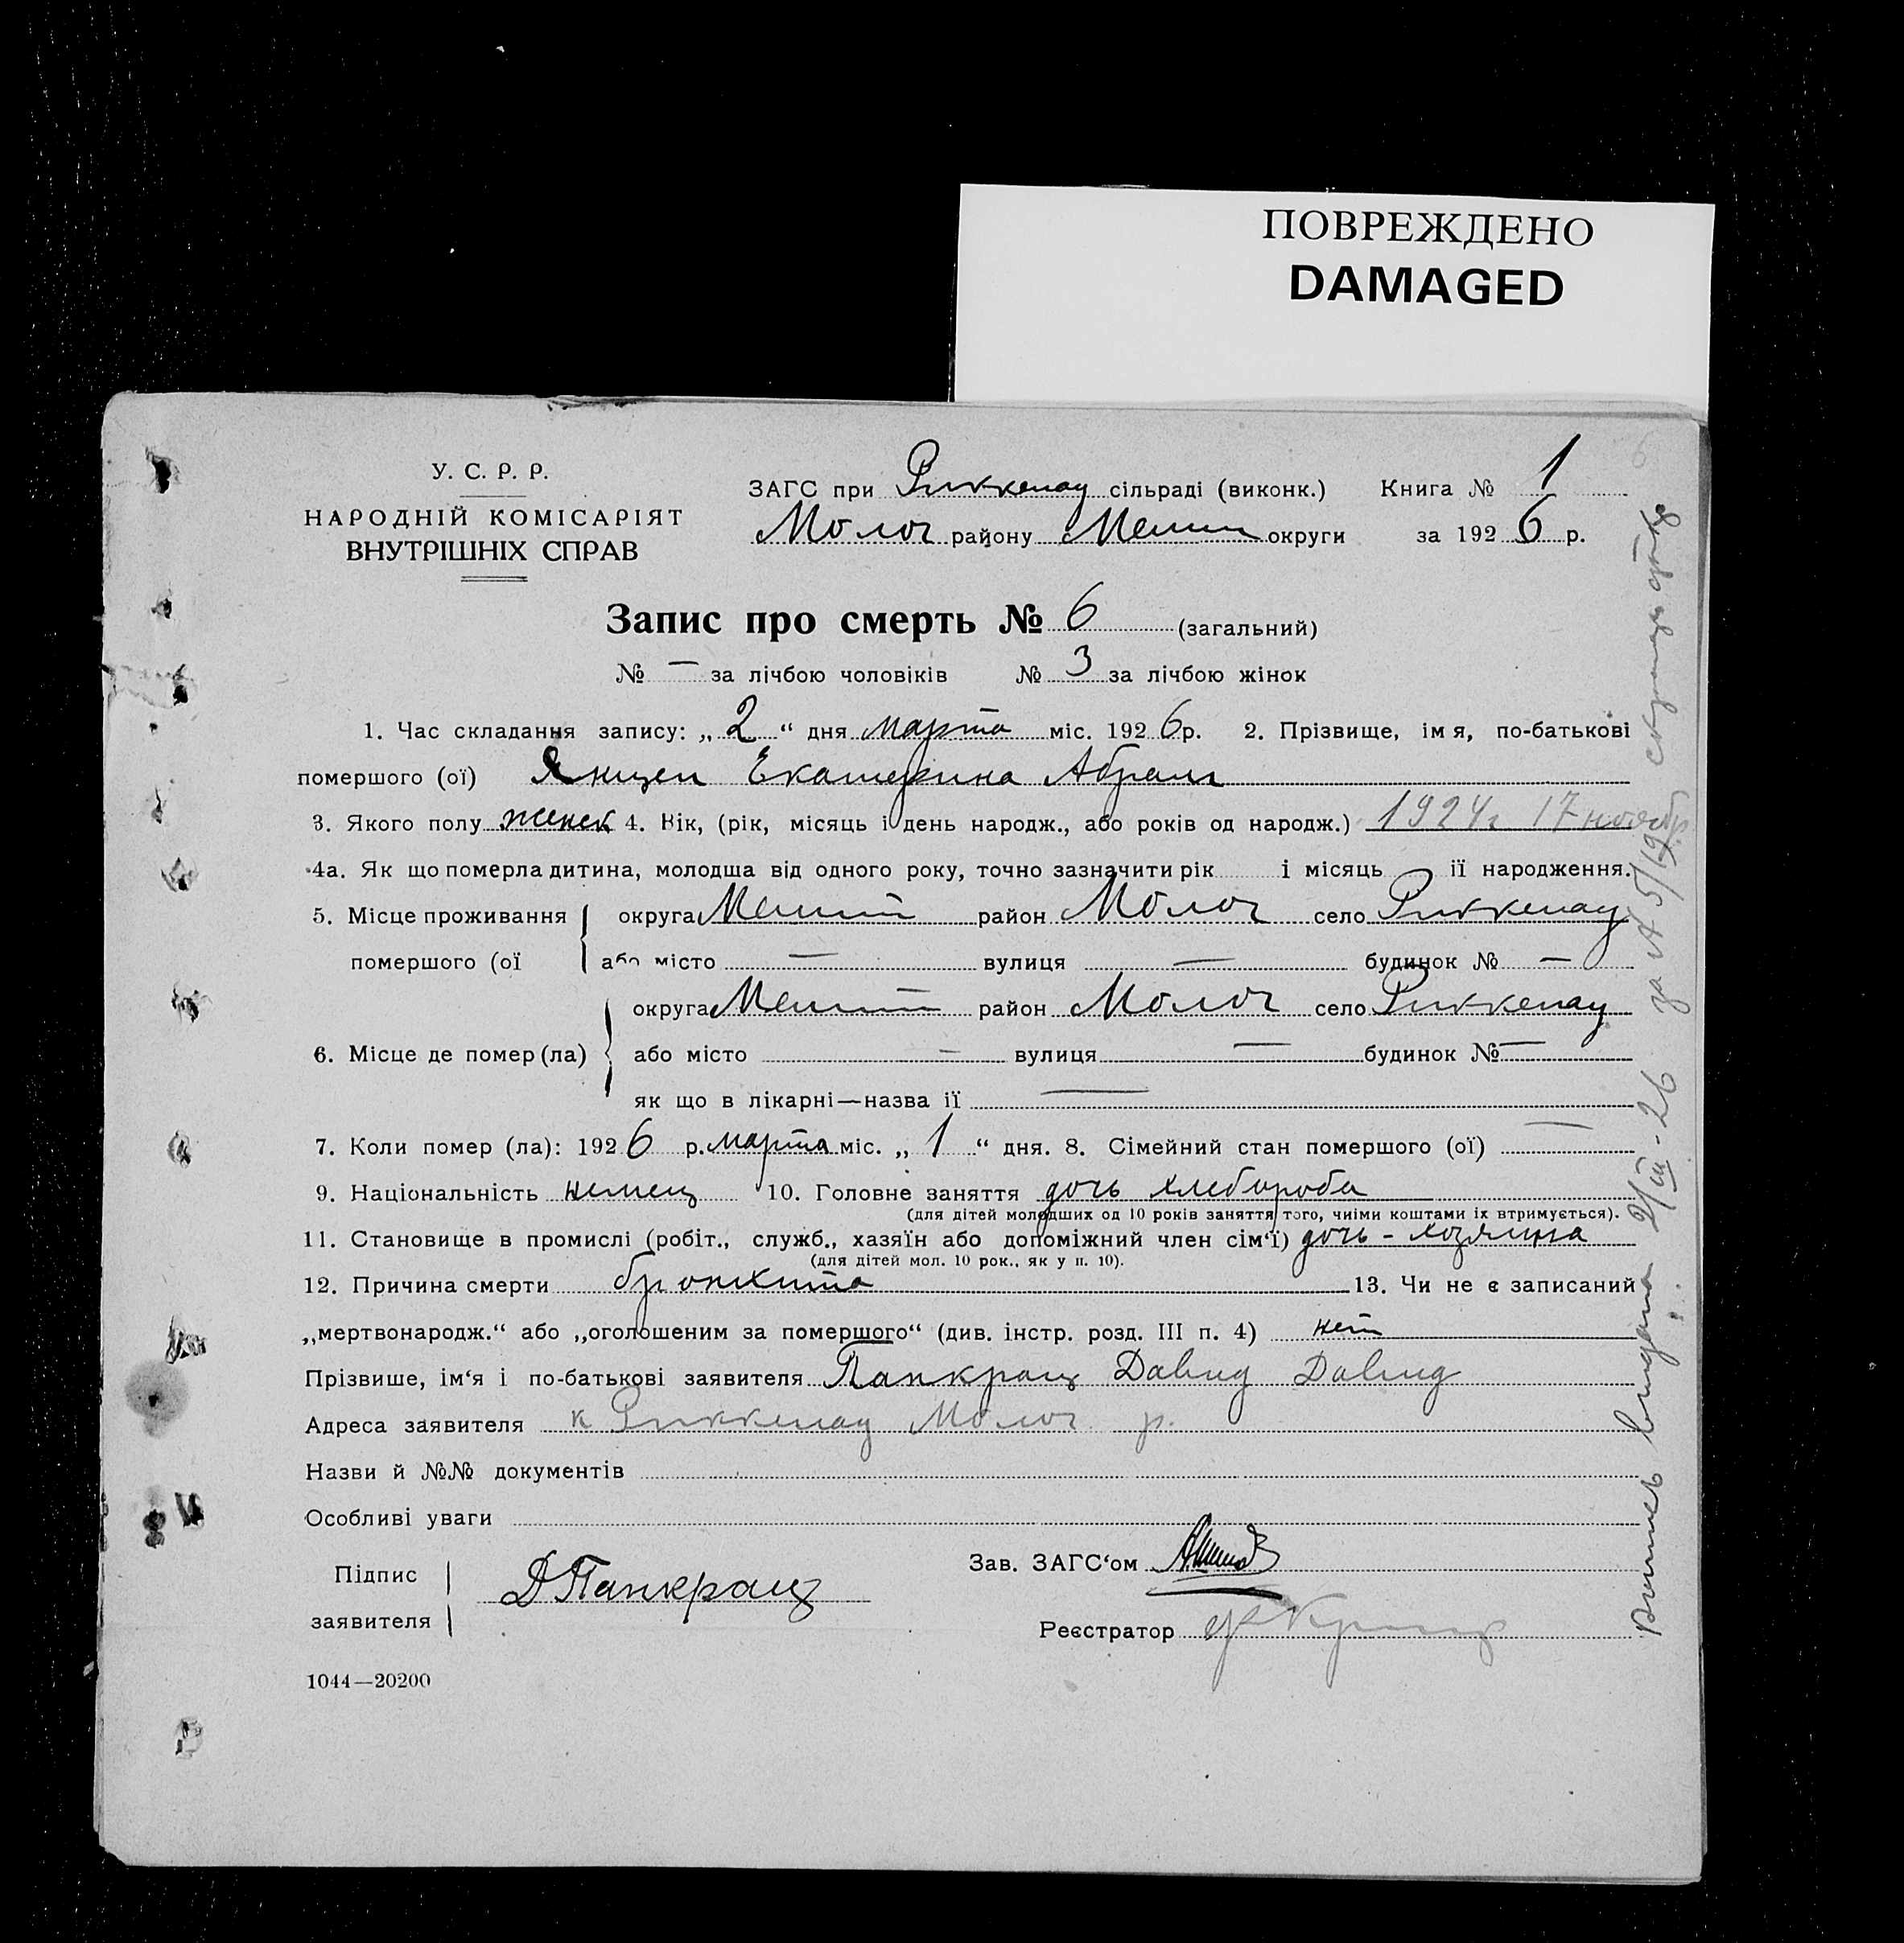 ПОВРЕЖДЕНО
DAMAGED
У. С. Р. Р.
НАРОДНІЙ КОМІСАРІЯТ
ВНУТРІШНІХ СПРАВ
ЗАГС при Риккенау сільраді (виконк.) Книга № 1
Молоч району Мелит округи за 1926 р.
Запис про смерть № 6 (загальний)
№ — за лічбою чоловіків № 3 за лічбою жінок
1. Час складання запису: „2“ дня марта міс. 1926 р. 2. Прізвище, імя, по-батькові
помершого (ої) Янцен Екатерина Абрам
3. Якого полу женск 4. Вік, (рік, місяць і день народж., або років од народж.) 1924 г 17 ноябр
4а. Як що померла дитина, молодша від одного року, точно зазначити рік і місяць її народження.
5. Місце проживання округа Мелит район Молоч село Риккенау
помершого (ої або місто — вулиця — будинок № —
округа Мелит район Молоч село Риккенау
6. Місце де помер (ла) або місто — вулиця — будинок № —
як що в лікарні—назва її —
7. Коли помер (ла): 1926 р. марта міс. „1“ дня. 8. Сімейний стан помершого (ої) —
9. Національність немец 10. Головне заняття дочь хлебороба
(для дітей молодших од 10 років заняття того, чиїми коштами їх втримується).
11. Становище в промислі (робіт., служб., хазяїн або допоміжний член сім‘ї) дочь - хозяина
(для дітей мол. 10 рок., як у п. 10).
12. Причина смерти бронхита 13. Чи не є записаний
„мертвонародж.“ або „оголошеним за помершого“ (див. інстр. розд. III п. 4) нет
Прізвише, ім‘я і по-батькові заявителя Панкрац Давид Давид
Адреса заявителя к Риккенау Молоч р.
Назви й №№ документів
Особливі уваги
Підпис
заявителя Д Панкрац
Зав. ЗАГС‘ом
Реєстратор
1044—20200
выдана 2/III-26 за № 5/19